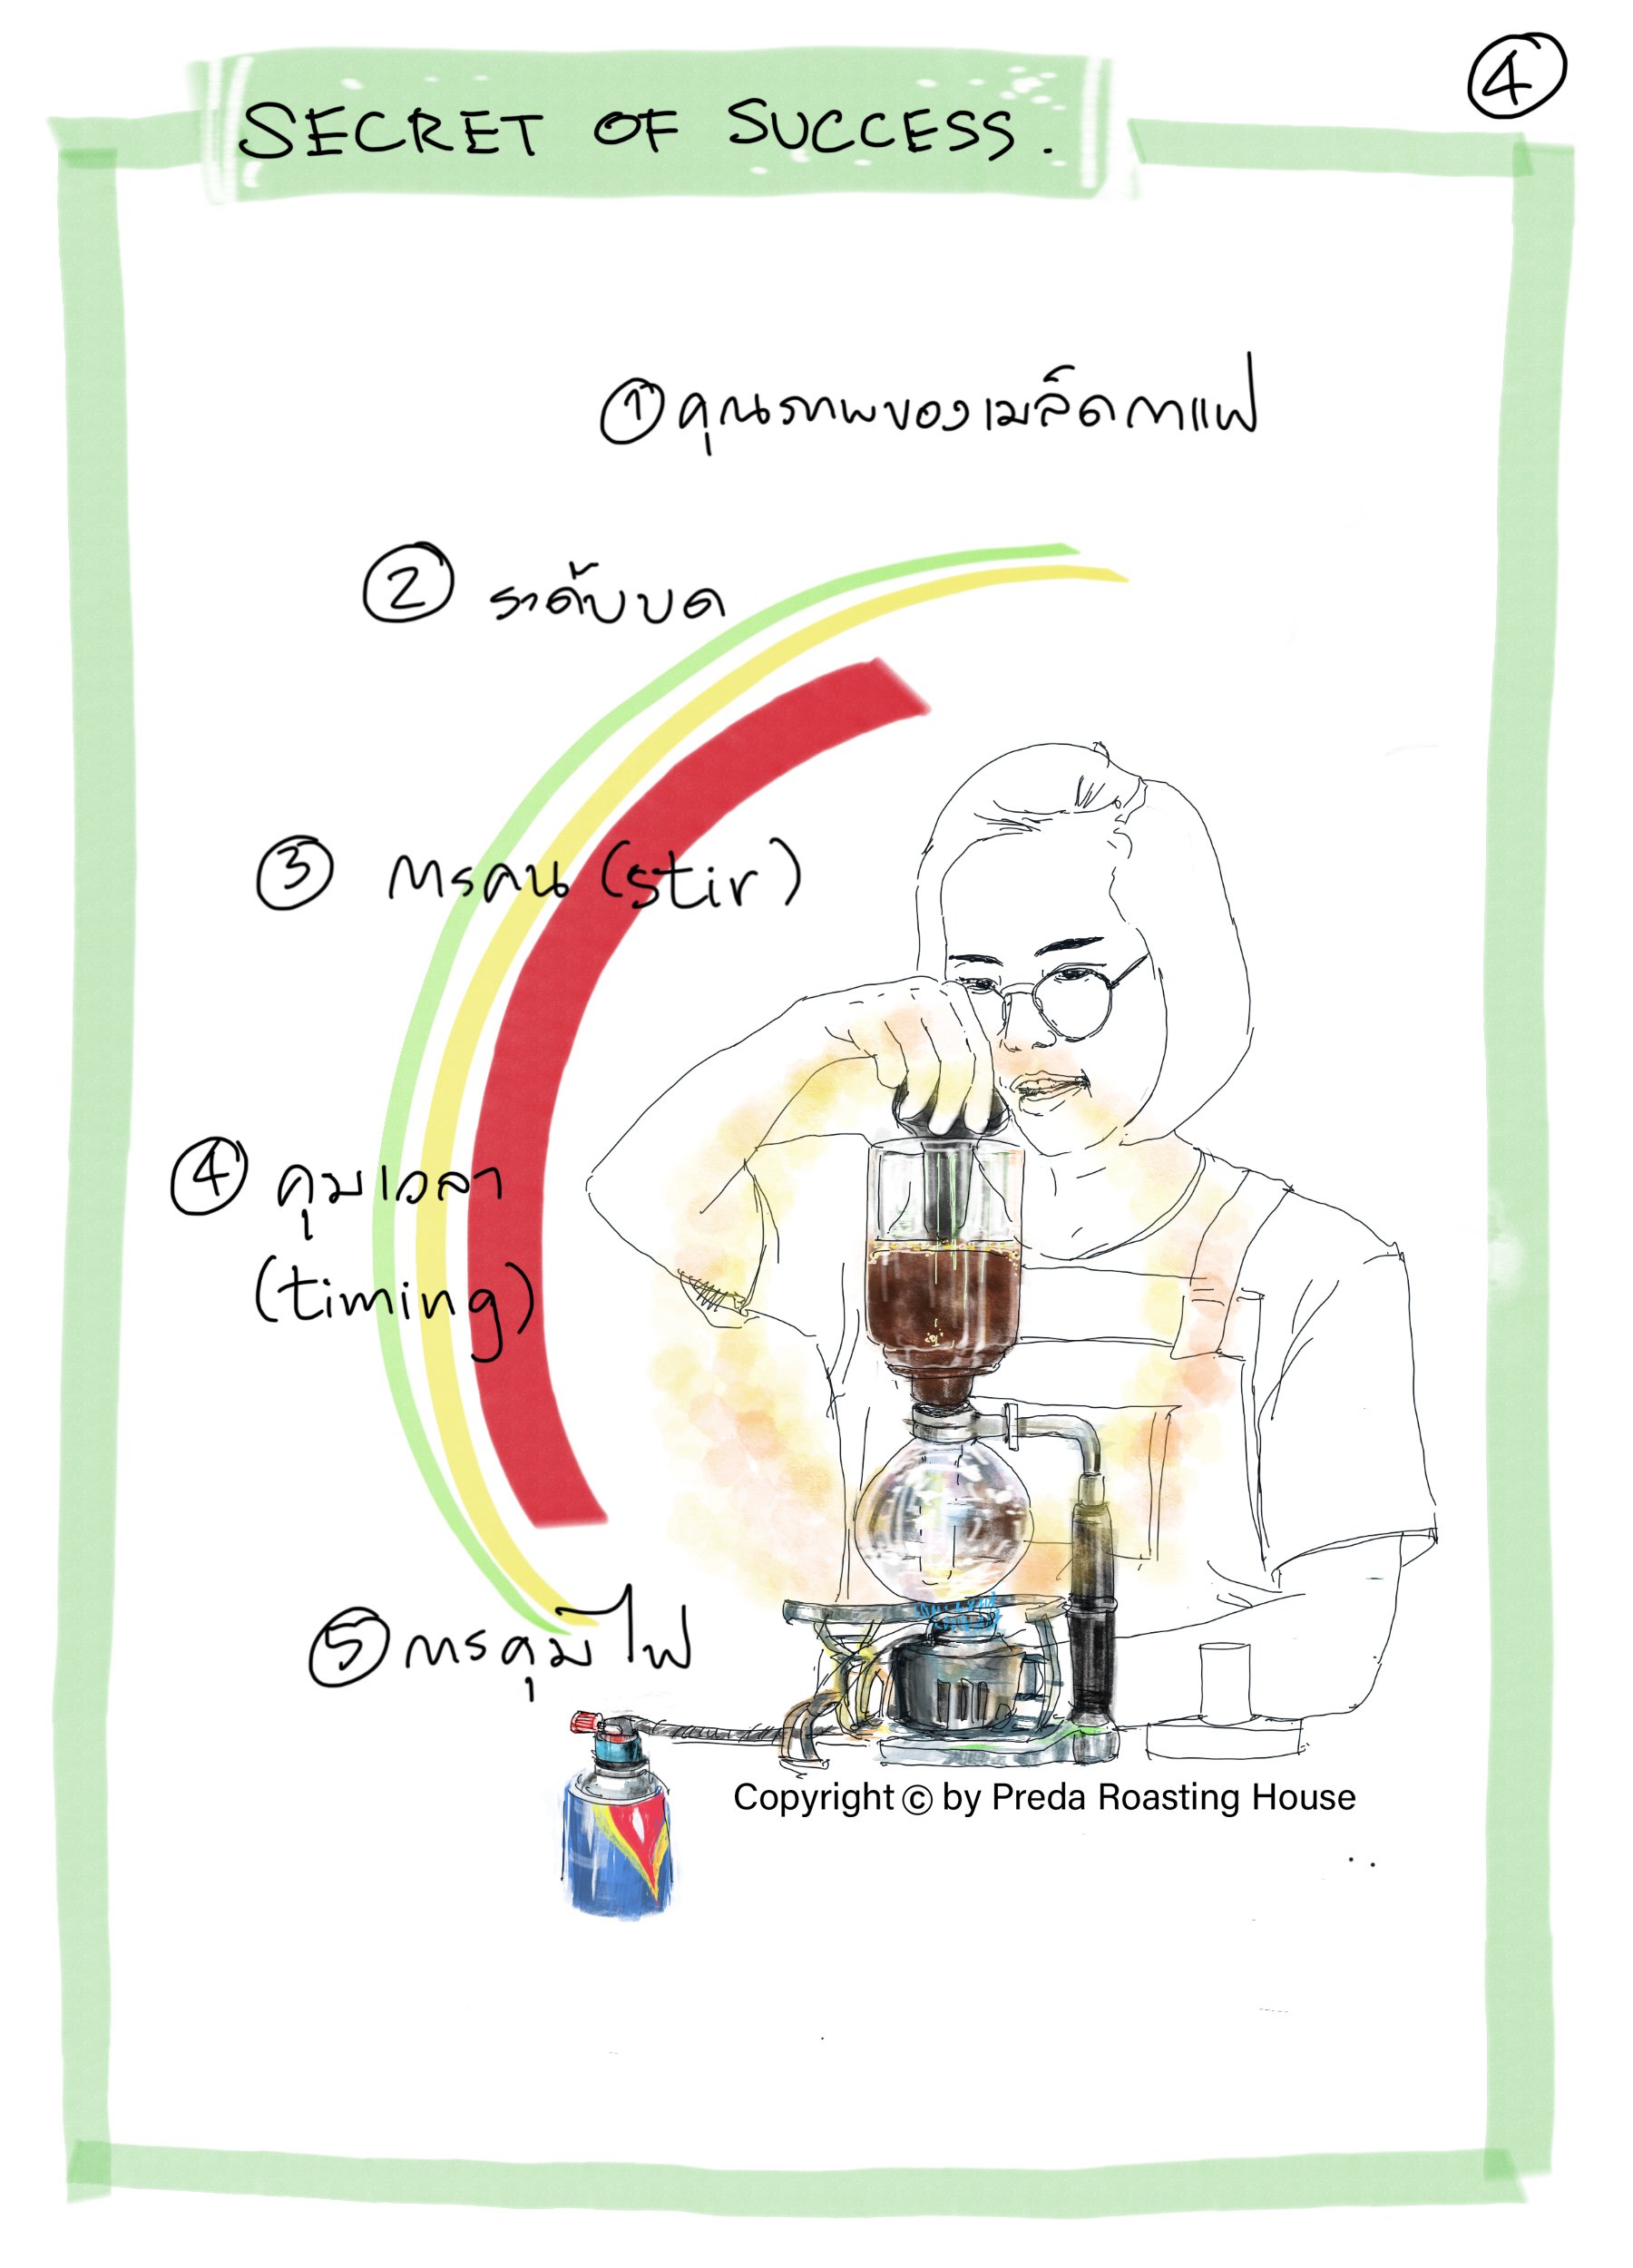 SECRET OF SUCCESS.
④
① คุณภาพของเมล็ดกาแฟ
② ระดับบด
③ การคน (stir)
④ คุมเวลา
(timing)
⑤ การคุมไฟ
Copyright © by Preda Roasting House